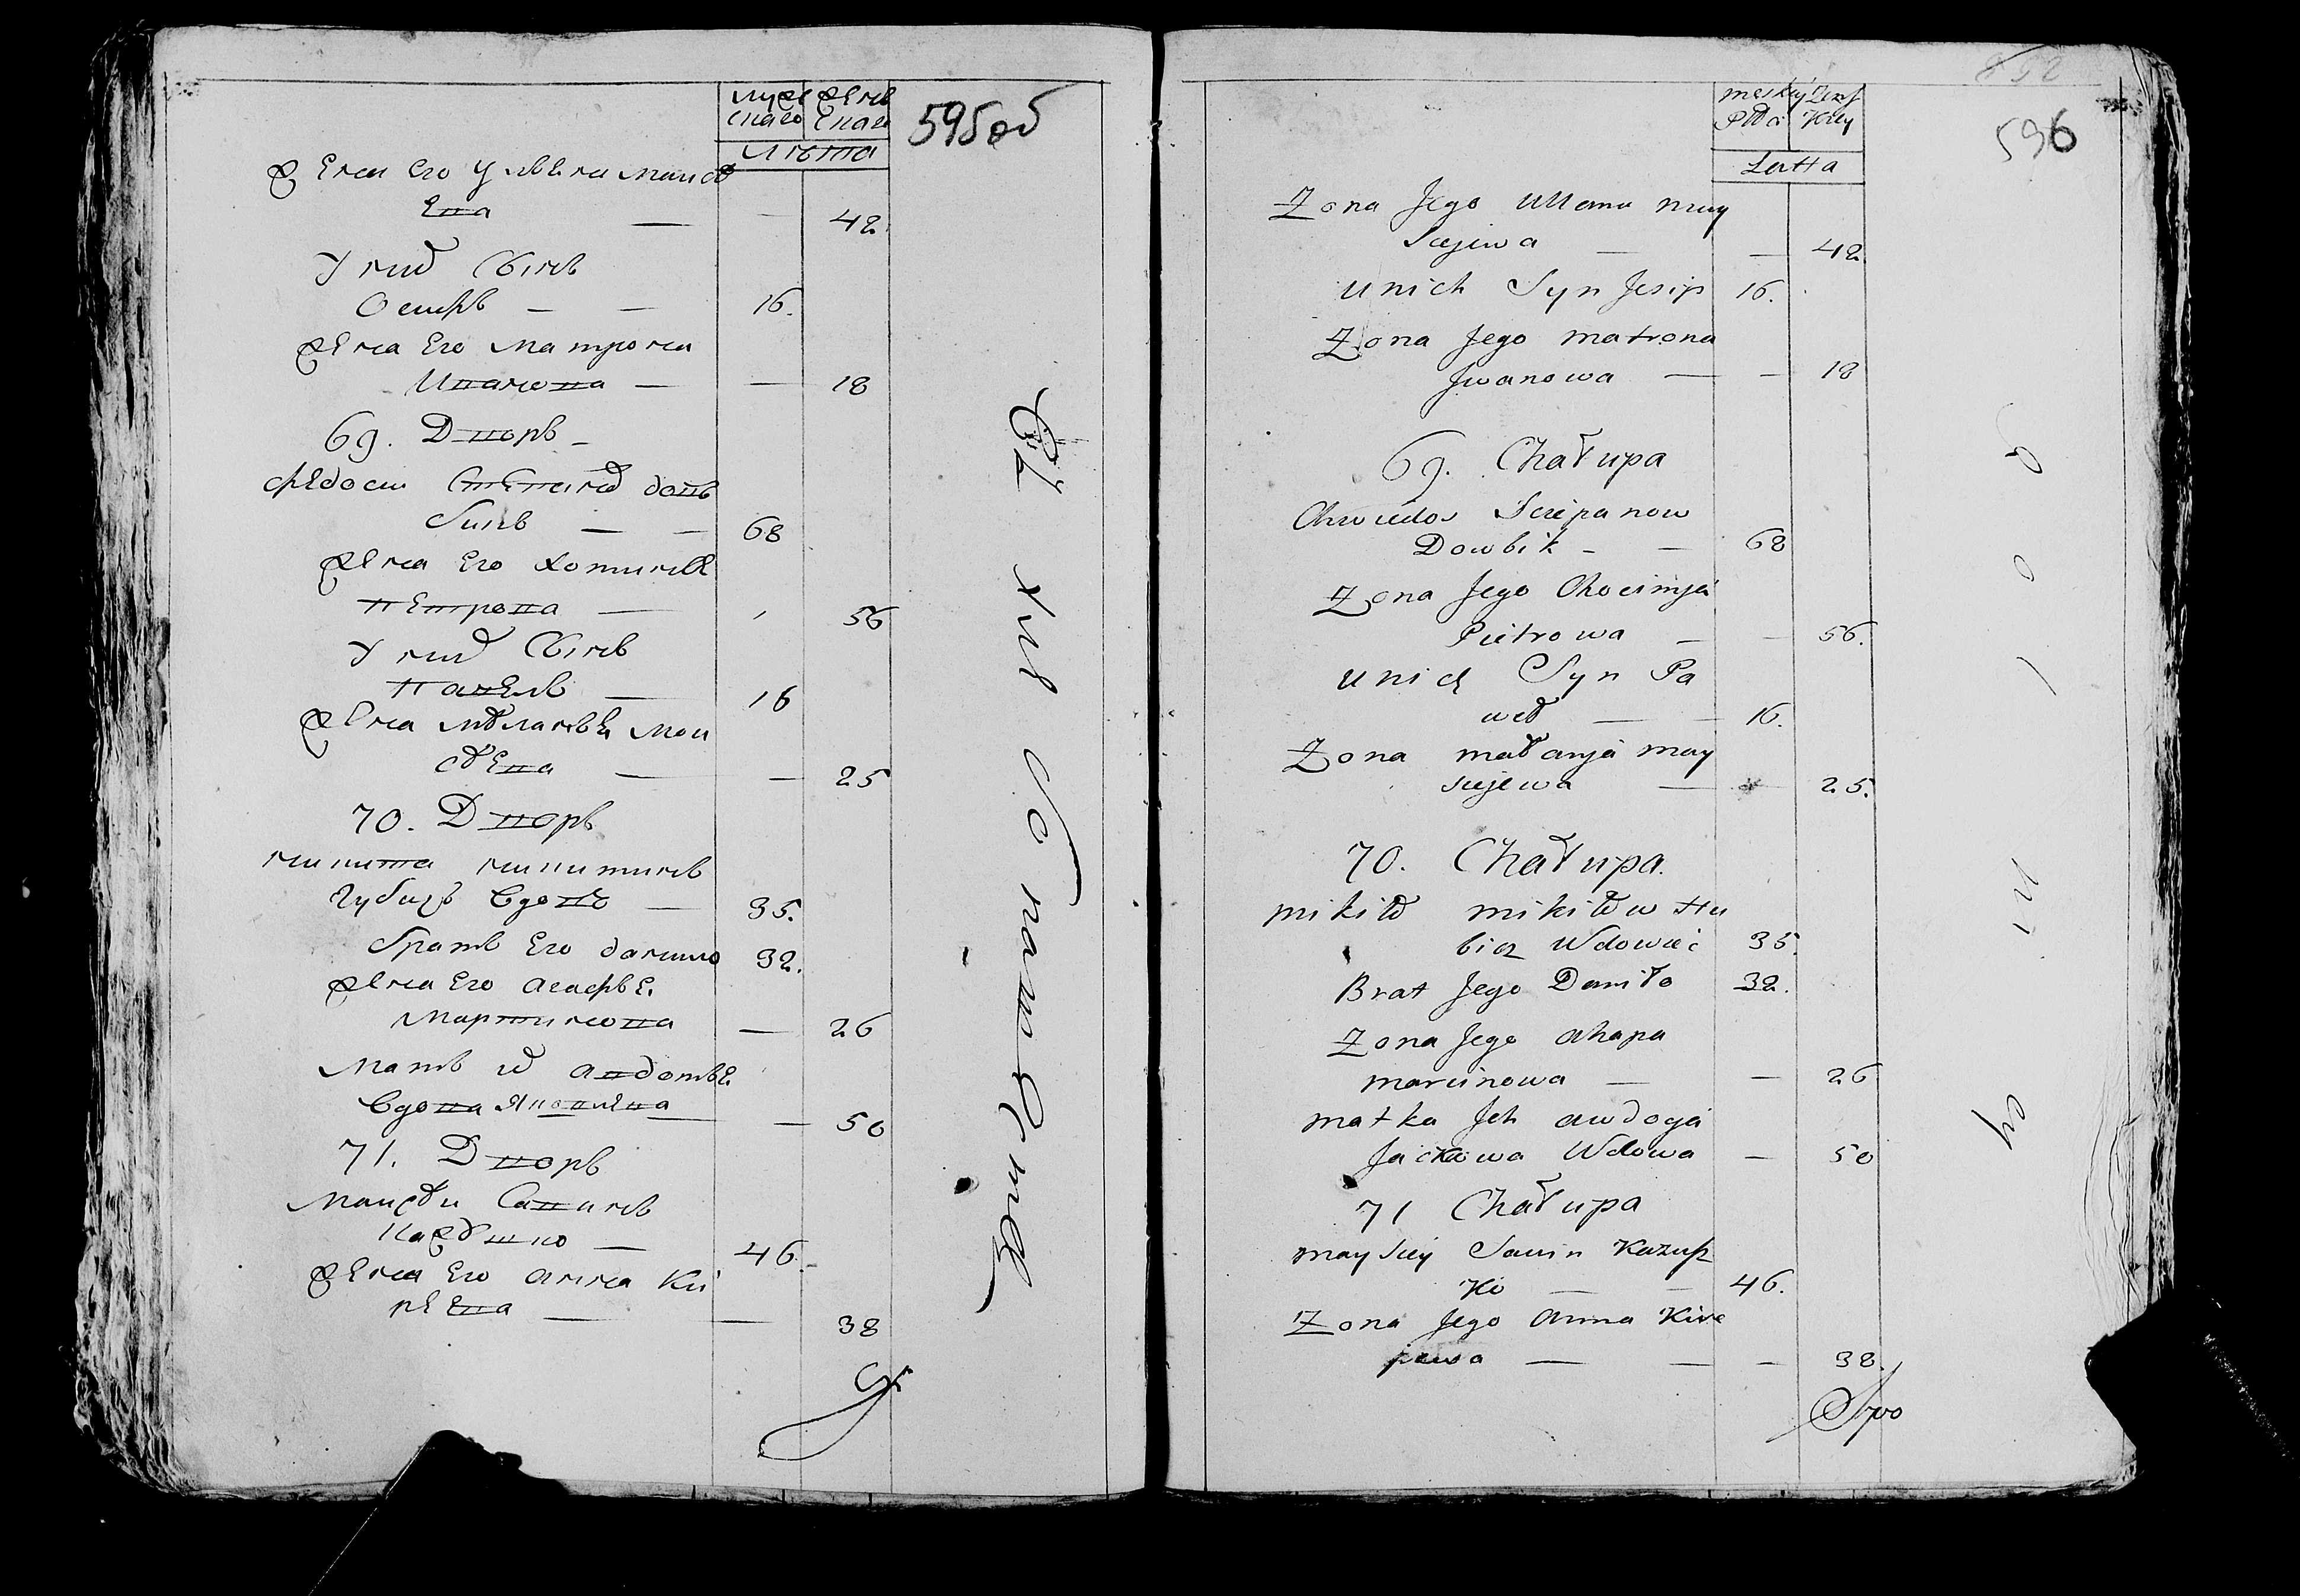 муже женс
скаго скаго
595об
Лѣта
Жена его Ульяна Маисѣ
ева — — 42
У них сынъ
Осипъ — — 16.
Жена его Матрона
Иванова — — 18
69. Дворъ
Федос Степанов дов
бикъ — — 68
Жена его Хотинья
Петрова — 56
У них сынъ
Павелъ — 16
Жена Маланья Мои
сѣева — — 25
70. Дворъ
Никита Никитинъ
Губичъ вдовъ — 35.
братъ его данило 32.
Жена его Агафья
Мартинова — 26
Мать их Авдотья
вдова Яковлева — 50
71. Дворъ
Маисѣи Савинъ
Кажушко — 46.
Жена его Анна Ки
реева — — 38
meskiy Zens
Płci Kiey
596
Latta
Zona Jego Ullana may
siejewa — — 42
unich Syn Jesip 16.
Zona Jego matrona
Jwanowa — — 18
69. Chałupa
Chwiedos Sciepanow
Dowbik - — 68
Zona Jego Chocimja
Pietrowa — — 56.
unich Syn Pa
weł — — 16.
Zona małanja may
siejewa — — 25.
70. Chałupa.
mikiła mikiłow Hu
bicz Wdowiec 35.
Brat Jego Daniło 32.
Zona Jego Ahapa
marcinowa — — 26
matka Jch awdocja
Jackowa Wdowa — 50
71 Chałupa
maysiey Sawin Kazusz
Ko — — 46.
Zona Jego Anna Kire
jewa — — — 38.